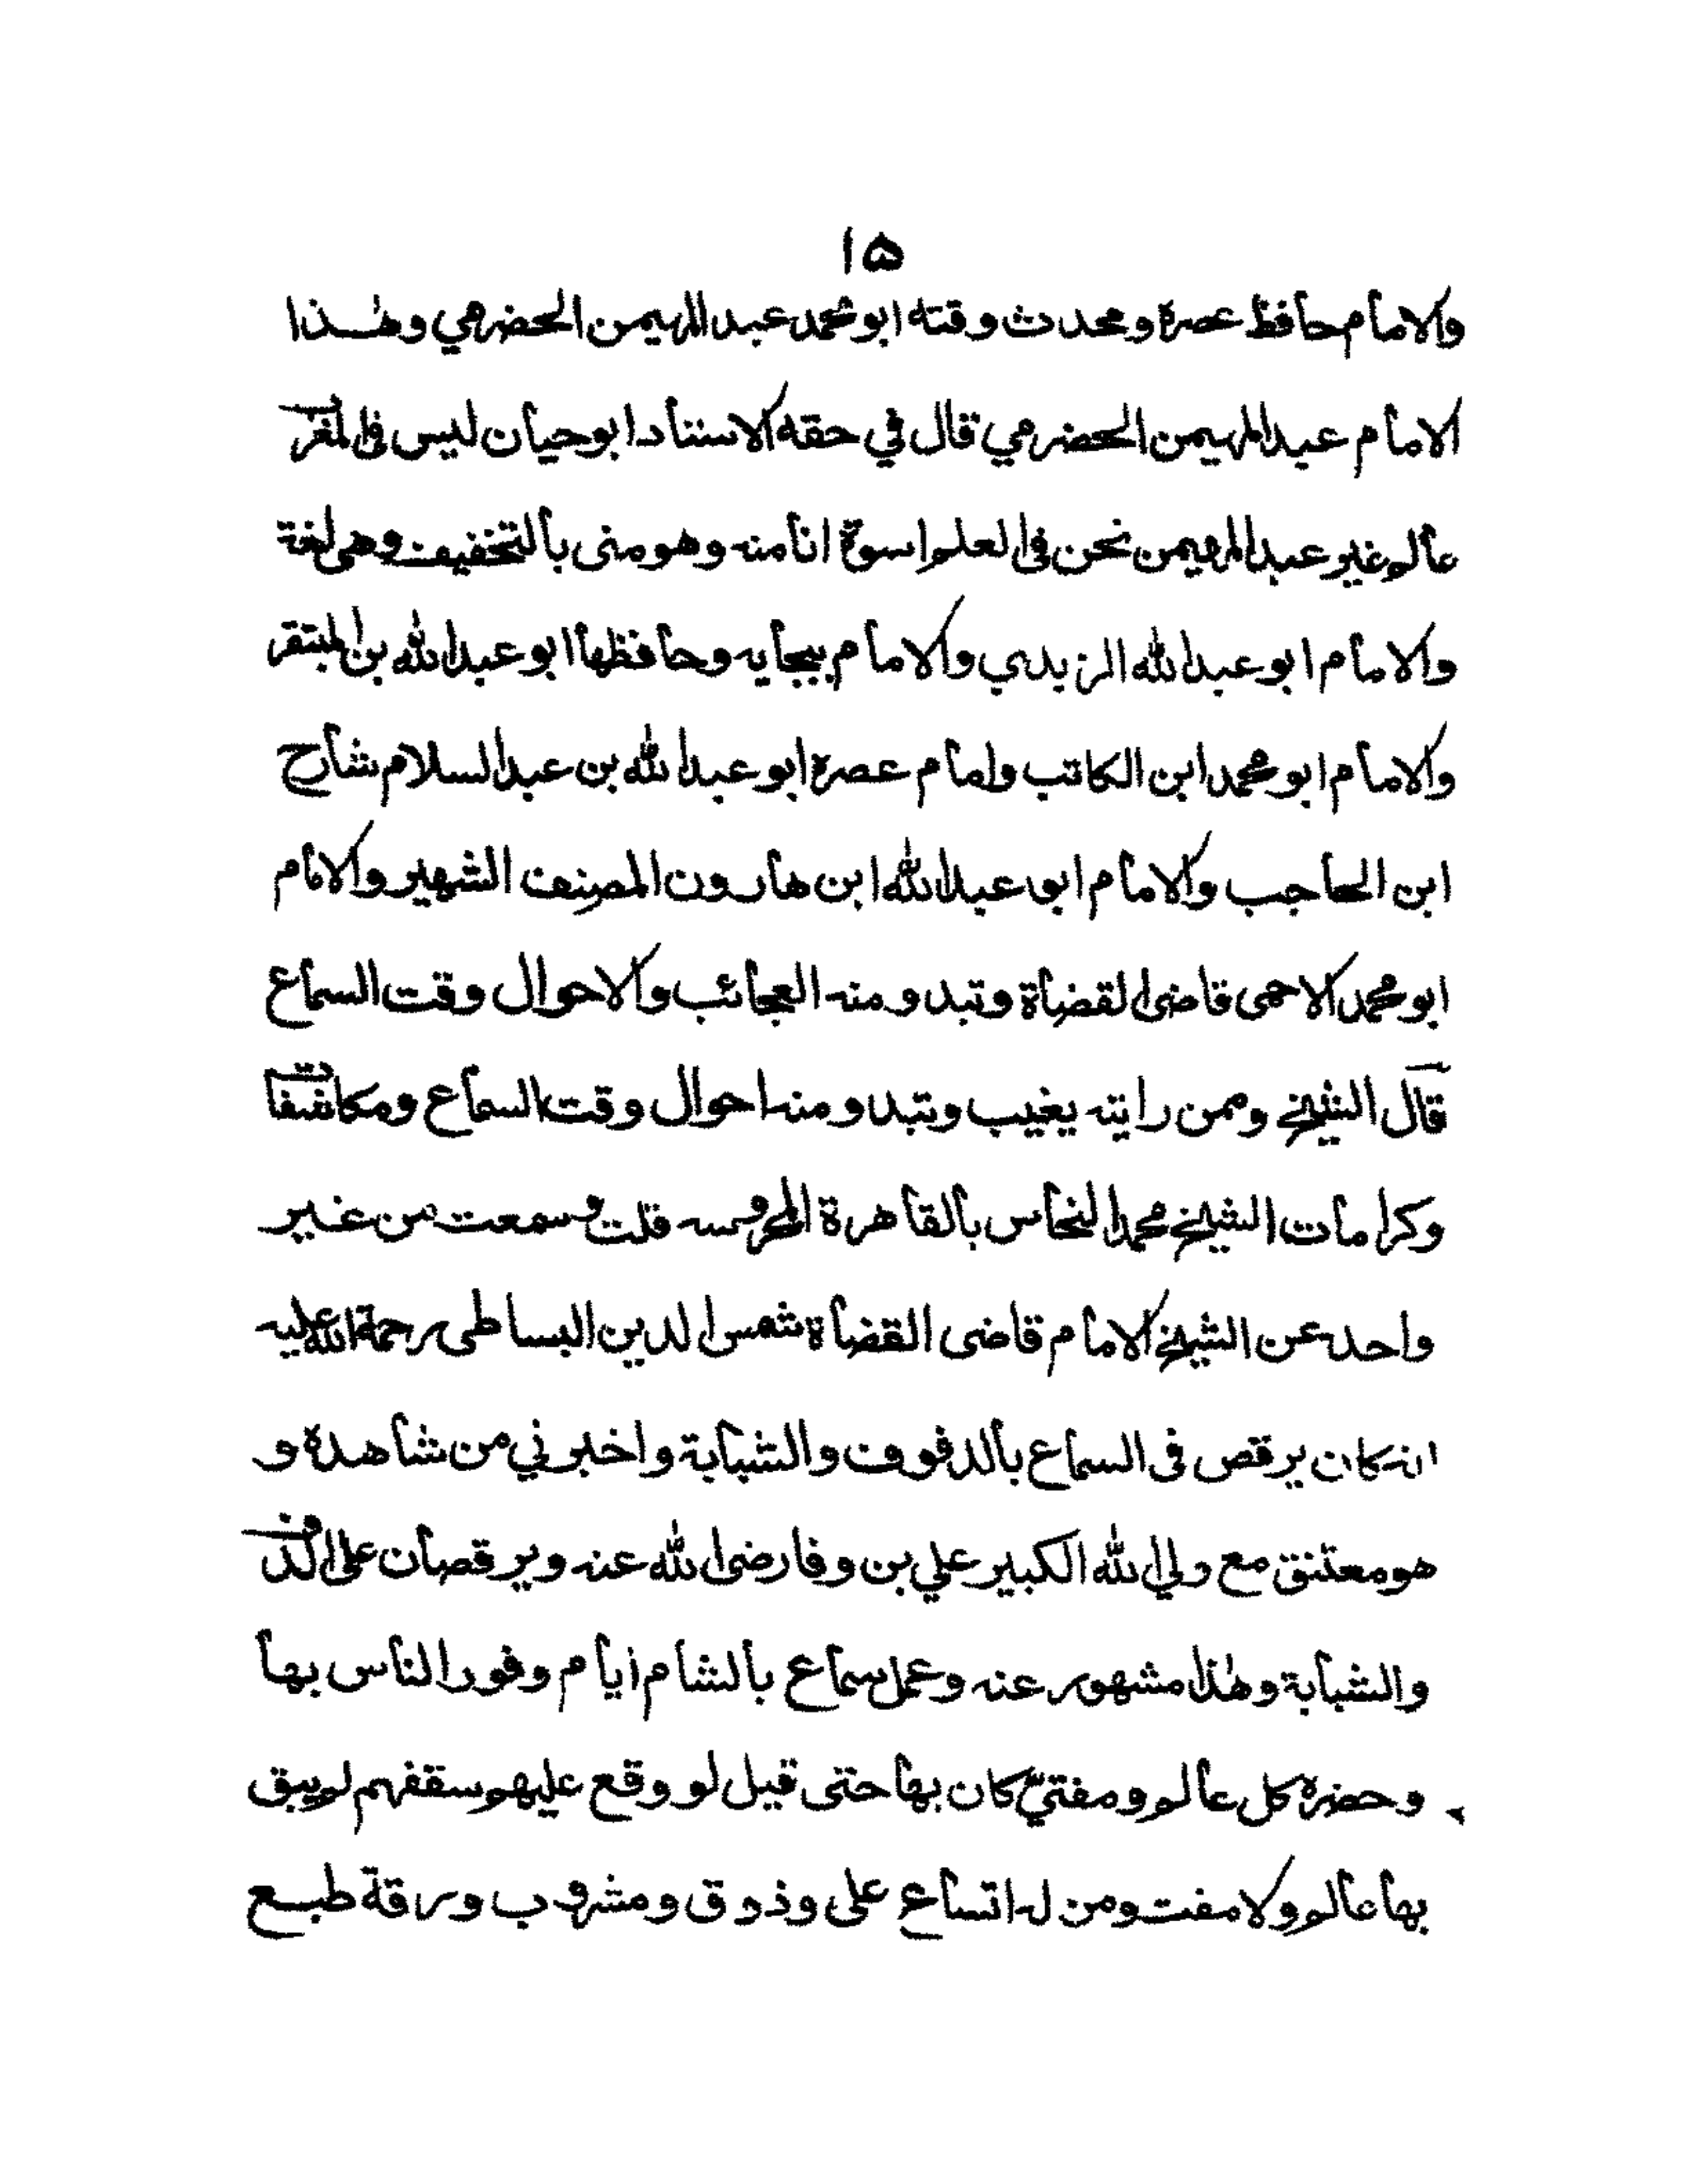 ١۵
والامام حافظ عصره ومحدث وقته ابو محمد عبد المهيمن الحضرمي وهٰذا
الامام عبد المهيمن الحضرمي قال في حقه الاستاد ابو حيان ليس فى المغرب
عالم غير عبد المهيمن نحن فى العلم اسوة انا منه وهو منى بالتخفيف وهى لغة
والامام ابو عبد الله الزبيدي والامام ببجايه وحافظها ابو عبد الله بن
والامام ابو محمد ابن الكاتب وامام عصره ابو عبد الله بن عبد السلام شارح
ابن الحاجب والامام ابو عبد الله ابن هارون المصنف الشهير والامام
ابو محمد الاحمى قاضى القضاة وتبدو منه العجائب والاحوال وقت السماع
قال الشيخ وممن رايته يغيب وتبدو منه احوال وقت السماع ومكاشفات
وكرامات الشيخ محمد النحاس بالقاهرة المحروسه قلت وسمعت من غير
واحد عن الشيخ الامام قاضى القضاة شمس الدين البساطى رحمة الله عليه
انه كان يرقص فى السماع بالدفوف والشبابة واخبرني من شاهده و
هو معتنق مع ولي الله الكبير علي بن وفا رضى الله عنه ويرقصان على الدف
والشبابة وهٰذا مشهور عنه وعمل سماع بالشام ايام وفور الناس بها
وحضره كل عالم ومفتيّ كان بها حتى قيل لو وقع عليهم سقفهم لم يبق
بها عالم ولا مفت ومن له اتساع على وذوق ومشروب ورقة طبع